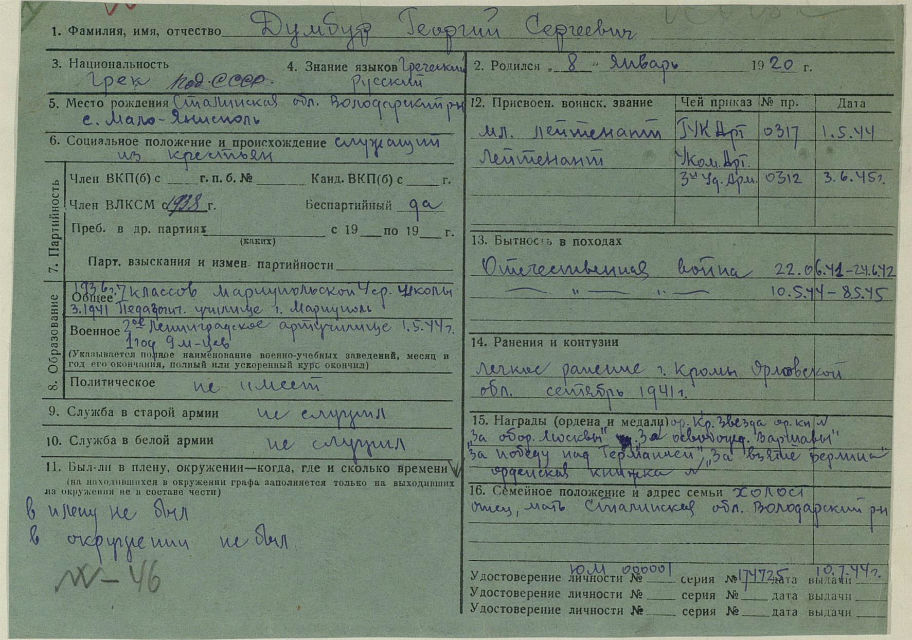 1. Фамилия, имя, отчество Думбур Георгий Сергеевич
3. Национальность 4. Знание языков Греческий
грек под. СССР. русский
5. Место рождения Сталинская обл. Володарский р-н
с. Мало-Янисполь
6. Социальное положение и происхождение служащий
из крестьян
7. Партийность
Член ВКП(б) с г. п. б. № Канд. ВКП(б) с г.
Член ВЛКСМ с 1938 г. Беспартийный да
Преб. в др. партиях с 19 по 19 г.
(каких)
Парт. взыскания и измен. партийности
8. Образование
1936 г. 7 классов Мариупольской ср. школы
Общее
3.1941 Педагогич. училище г. Мариуполь
Военное 2ое Ленинградское артучилище 1.5.44г.
1 год 9 м-цев
(Указывается полное наименование военно-учебных заведений, месяц и
год его окончания, полный или ускоренный курс окончил)
Политическое не имеет
9. Служба в старой армии не служил
10. Служба в белой армии не служил
11. Был-ли в плену, окружении—когда, где и сколько времени
(на находившихся в окружении графа заполняется только на выходивших
из окружения не в составе части)
в плену не был
в окружении не был
46
2. Родился „ 8 " Январь 1920 г.
12. Присвоен. воинск. звание Чей приказ № пр. Дата
мл. лейтенант ГУК Арт 0317 1.5.44
лейтенант Уком. Арт.
3й Уд. Арм. 0312 3.6.45г.
13. Бытность в походах
Отечественная война 22.06.41-24.6.42
— „ — „ — 10.5.44-8.5.45
14. Ранения и контузии
легкое ранение г. Кромы Орловской
обл. сентябрь 1941г.
15. Награды (ордена и медали) ор. Кр. Звезда ор. кн. №
„За обор. Москвы" „За освобожд. Варшавы"
„За победу над Германией", „За взятие Берлина"
орденская книжка №
16. Семейное положение и адрес семьи холост
отец, мать Сталинская обл. Володарский р-н
Удостоверение личности № ЮМ 000001 серия № 174725 дата выдачи 10.7.44г.
Удостоверение личности № серия № дата выдачи
Удостоверение личности № серия № дата выдачи